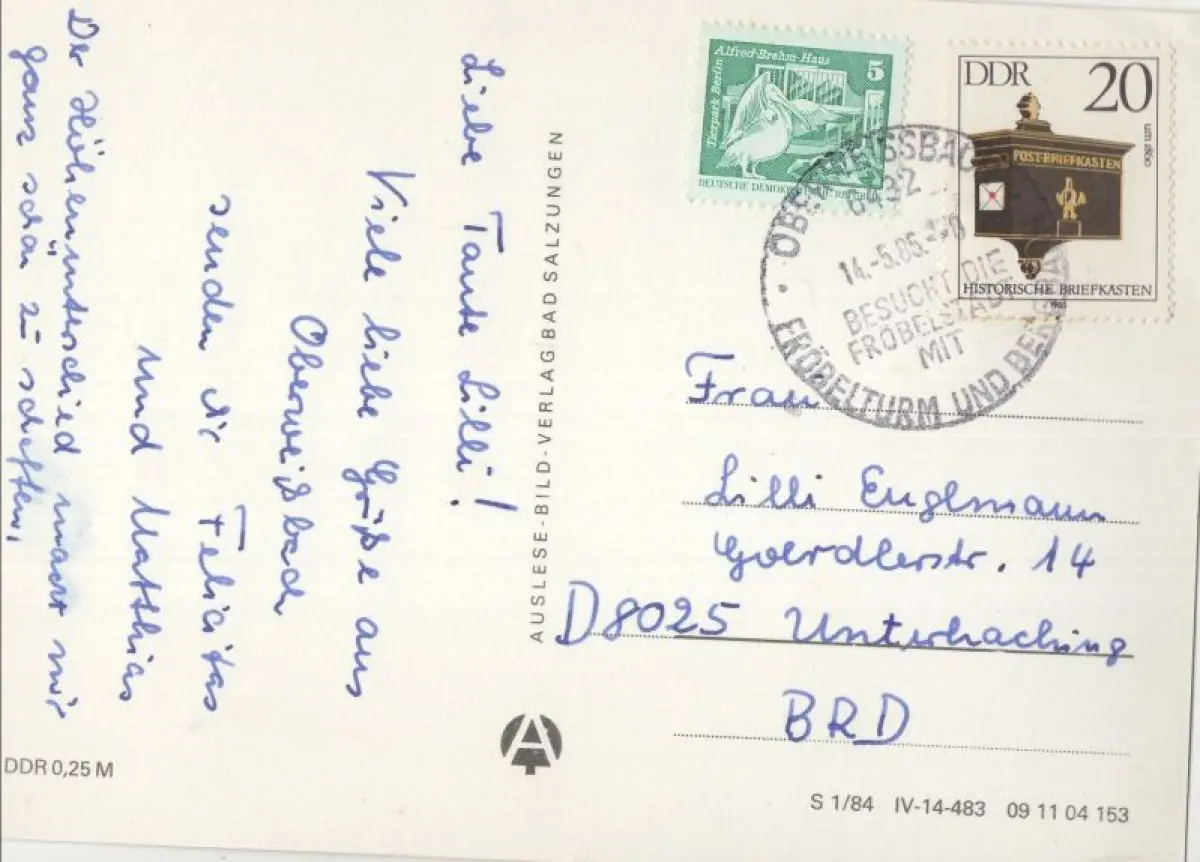 Liebe Tante Lilli!
Viele liebe Grüße aus
Oberweißbach
senden dir Felicitas
und Matthias
Der Höhenunterschied macht mir
ganz schön zu schaffen.
AUSLESE-BILD-VERLAG BAD SALZUNGEN
A
DDR 0,25 M
Alfred-Brehm-Haus
5
Tierpark Berlin
DEUTSCHE DEMOKRATISCHE REPUBLIK
DDR 20
um 1860
POST-BRIEFKASTEN
HISTORISCHE BRIEFKÄSTEN
1985
OBERWEISSBACH
6432
14.-5.85.
BESUCHT DIE
FRÖBELSTADT
MIT
FRÖBELTURM UND BERGBAHN
Frau
Lilli Englmann
Goerdlerstr. 14
D8025 Unterhaching
BRD
S 1/84 IV-14-483 09 11 04 153